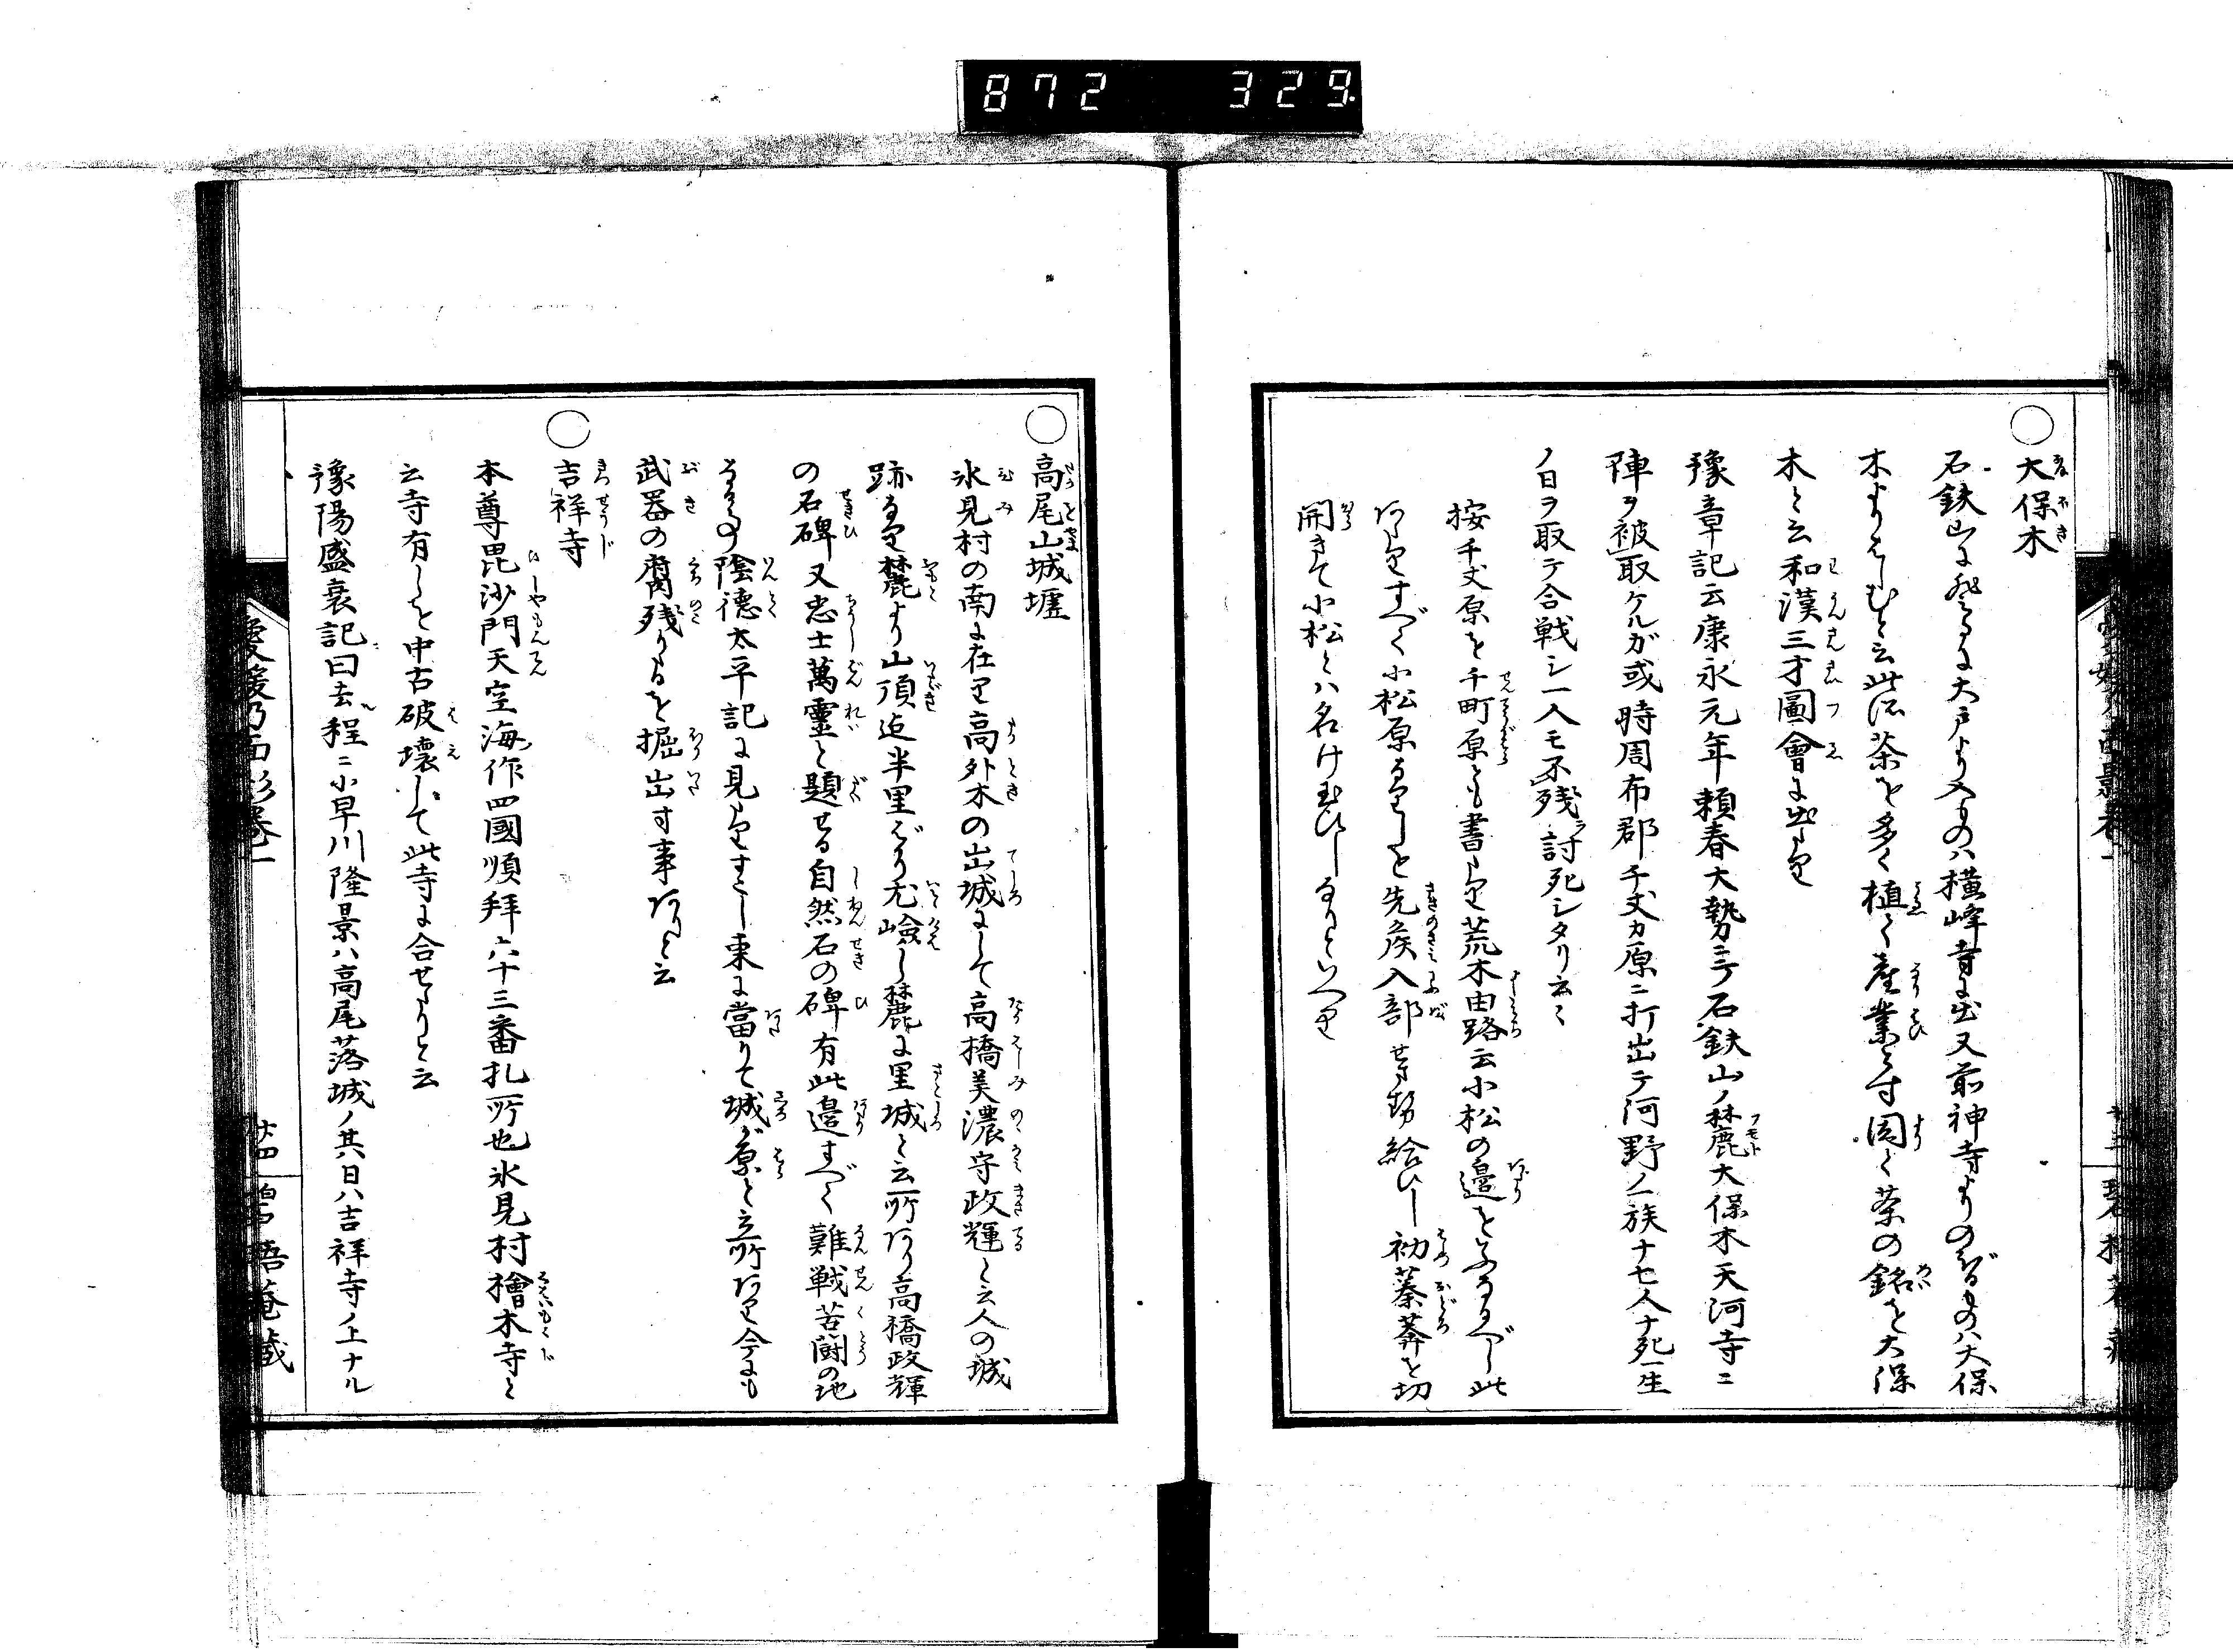 872 329
○大保木
石鉄山に登るに大戸より入ものハ横峰寺に出又前神寺よりのぼるものハ大保
木よりすゝむと云此所茶を多く植て産業とす因て茶の銘を大保
木と云和漢三才圖會に出たり
豫章記云康永元年頼春大勢ニテ石鉄山ノ麓大保木天河寺ニ
陣ヲ被取ケルガ或時周布郡千丈カ原ニ打出テ河野ノ一族ナセ人十死一生
ノ日ヲ取テ合戦シ一人モ不残討死シタリ云々
按千丈原を千町原とも書たり荒木由路云小松の邉をいふなるべし此
辺すべく小松原なりしを先侯入部せさせ給ひし初蓁莽を切
開きて小松とハ名け玉ひしなりといへり
○高尾山城墟
氷見村の南に在り高外木の出城にして高橋美濃守政輝と云人の城
跡なり麓より山頂迄半里ばかり尤嶮し麓に里城と云所あり高橋政輝
の石碑又忠士萬霊と題せる自然石の碑有此邉すべく難戦苦闘の地
なる事陰徳太平記に見たりすこし東に當りて城が原と云所あり今にも
武器の腐残りたるを掘出す事ありと云
○吉祥寺
本尊毘沙門天空海作四國順拜六十三番札所也氷見村檜木寺と
云寺有しを中古破壊して此寺に合せたりと云
豫陽盛衰記曰去程ニ小早川隆景ハ高尾落城ノ其日ハ吉祥寺ノ上ナル
愛媛乃面影巻一
廿四
碧梧菴蔵